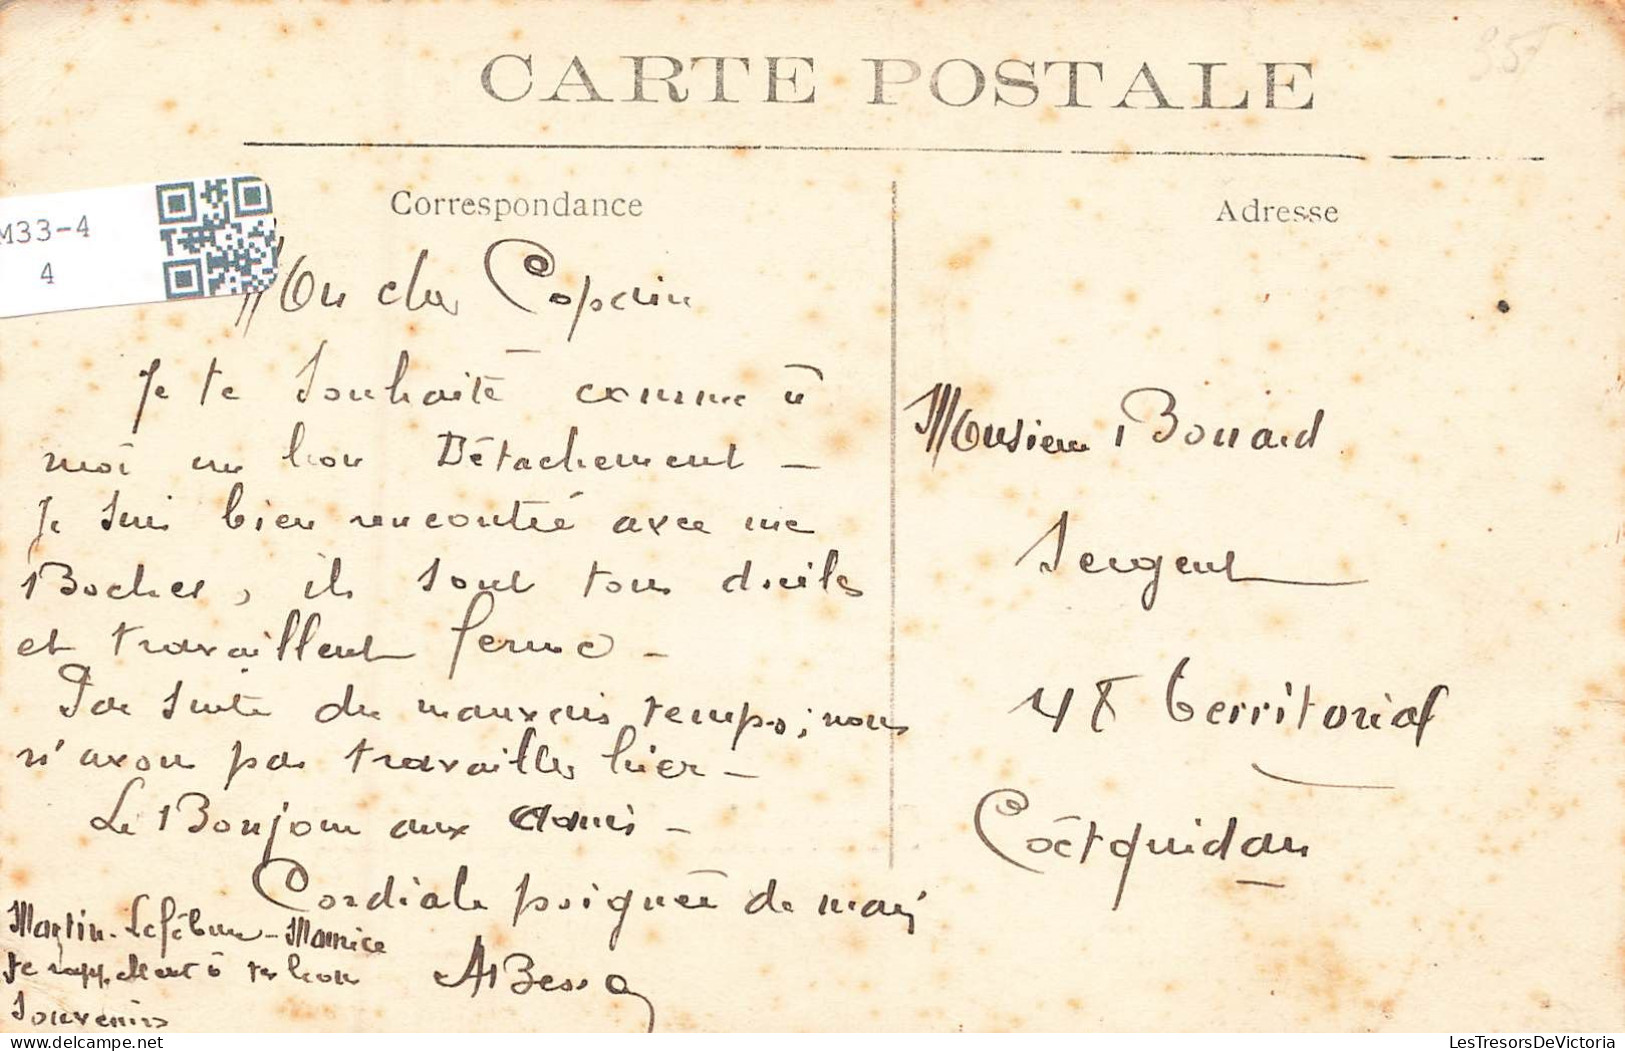 CARTE POSTALE
Correspondance
Adresse
M33-4
4
Mon cher Copain
Je te souhaite comme à
moi un bon Détachement -
Je suis bien rencontré avec me
Boches, ils sont tous dociles
et travaillent ferme -
Par suite du mauvais temps, nous
n'avons pas travailler hier -
Le Bonjour aux amis -
Cordiale poignée de main
Martin - Lefêbvre - Maurice
te rappellent à tes bon
souvenirs
ABessa
Monsieur Bouard
Sergent
4 Territorial
Coëtquidan
delcampe.net
LesTresorsDeVictoria